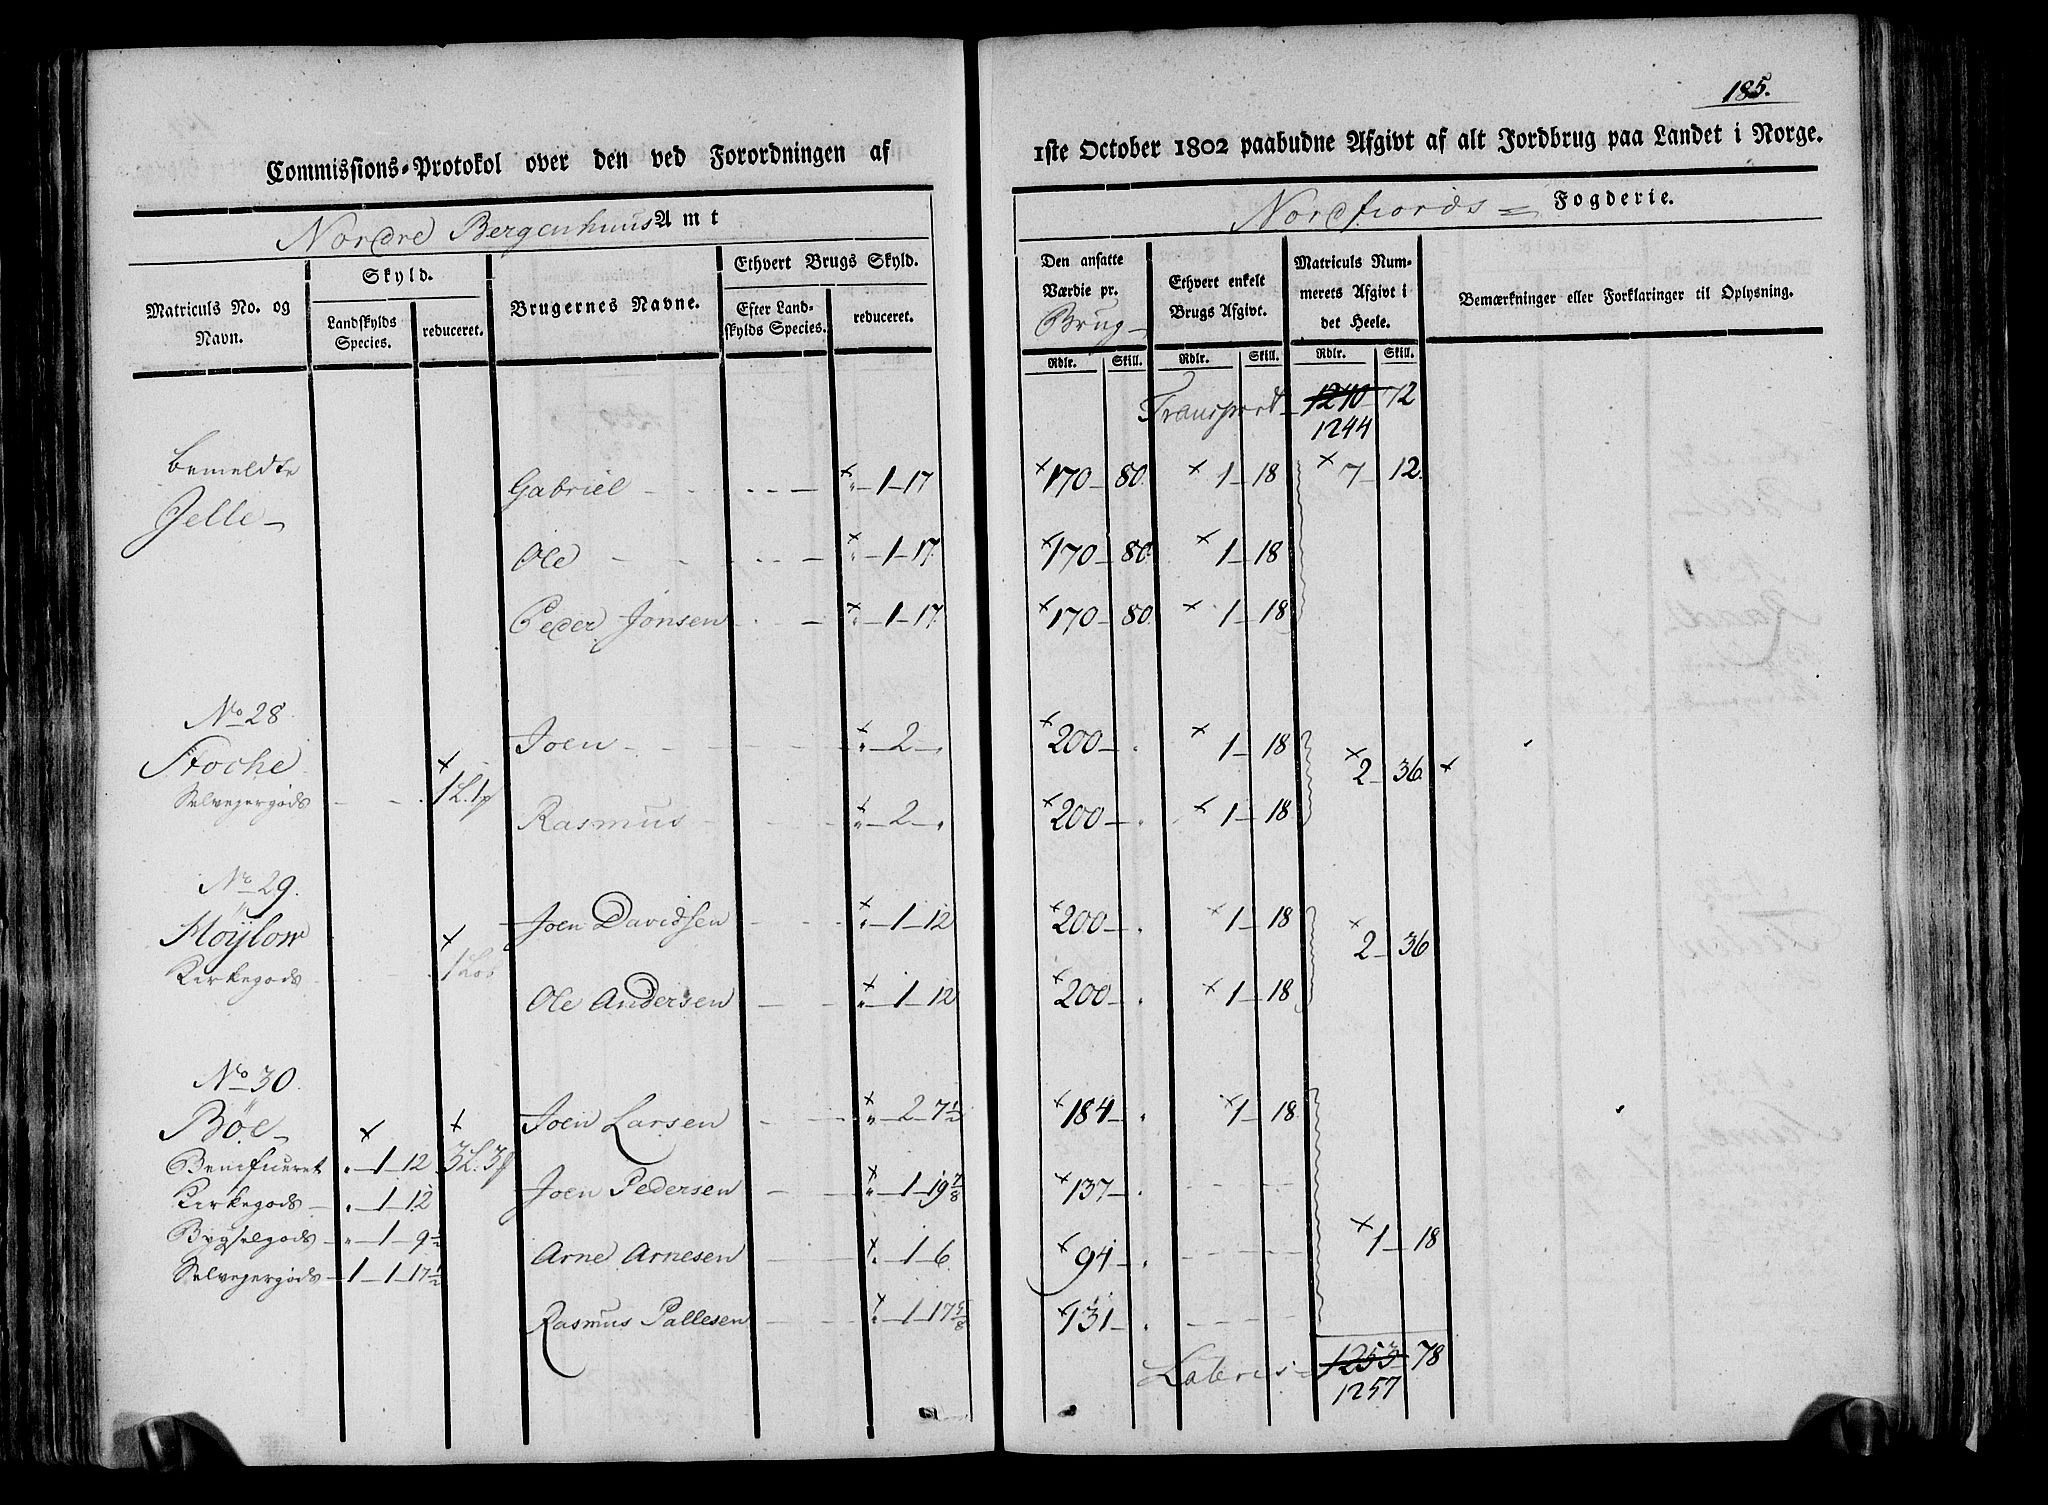 185.
Commissions-Protokol over den ved Forordningen af 1ste October 1802 paabudne Afgivt af alt Jordbrug paa Landet i Norge.
Nordre Bergenhuus Amt
Nordfiords Fogderie.
Matriculs No. og Navn.
Skyld.
Landskylds Species.
reduceret.
Brugernes Navne.
Ethvert Brugs Skyld.
Efter Landskylds Species.
reduceret.
Den ansatte Værdie pr. Brug
Ethvert enkelt Brugs Afgivt.
Matriculs Nummerets Afgivt i det Heele.
Bemærkninger eller Forklaringer til Oplysning.
Rdlr. Skill. Rdlr. Skill. Rdlr. Skill.
Transport 1240 72
1244
bemeldte
Jelle
Gabriel " 1 17 170 80 1 18 7 12
Ole " 1 17 170 80 1 18
Peder Jonsen " 1 17 170 80 1 18
No 28
Stoche
Selvejergods 1 L. 1
Joen " 2 " 200 " 1 18 2 36
Rasmus " 2 " 200 " 1 18
No 29.
Möÿlow
Kirkegods 1 Lob
Joen Davidsen " 1 12 200 " 1 18 2 36
Ole Andersen " 1 12 200 " 1 18
No 30.
Böe
Benificeret " 1 12 3 L. 3
Kirkegods " 1 12
Bygselgods " 1 9½
Selvejergods 1 1 17½
Joen Larsen " 2 7½ 184 " 1 18
Joen Pedersen " 1 19⅞ 137 "
Arne Arnesen " 1 6 94 " 1 18
Rasmus Pallesen " 1 17⅝ 131 "
Lateris 1253 78
1257